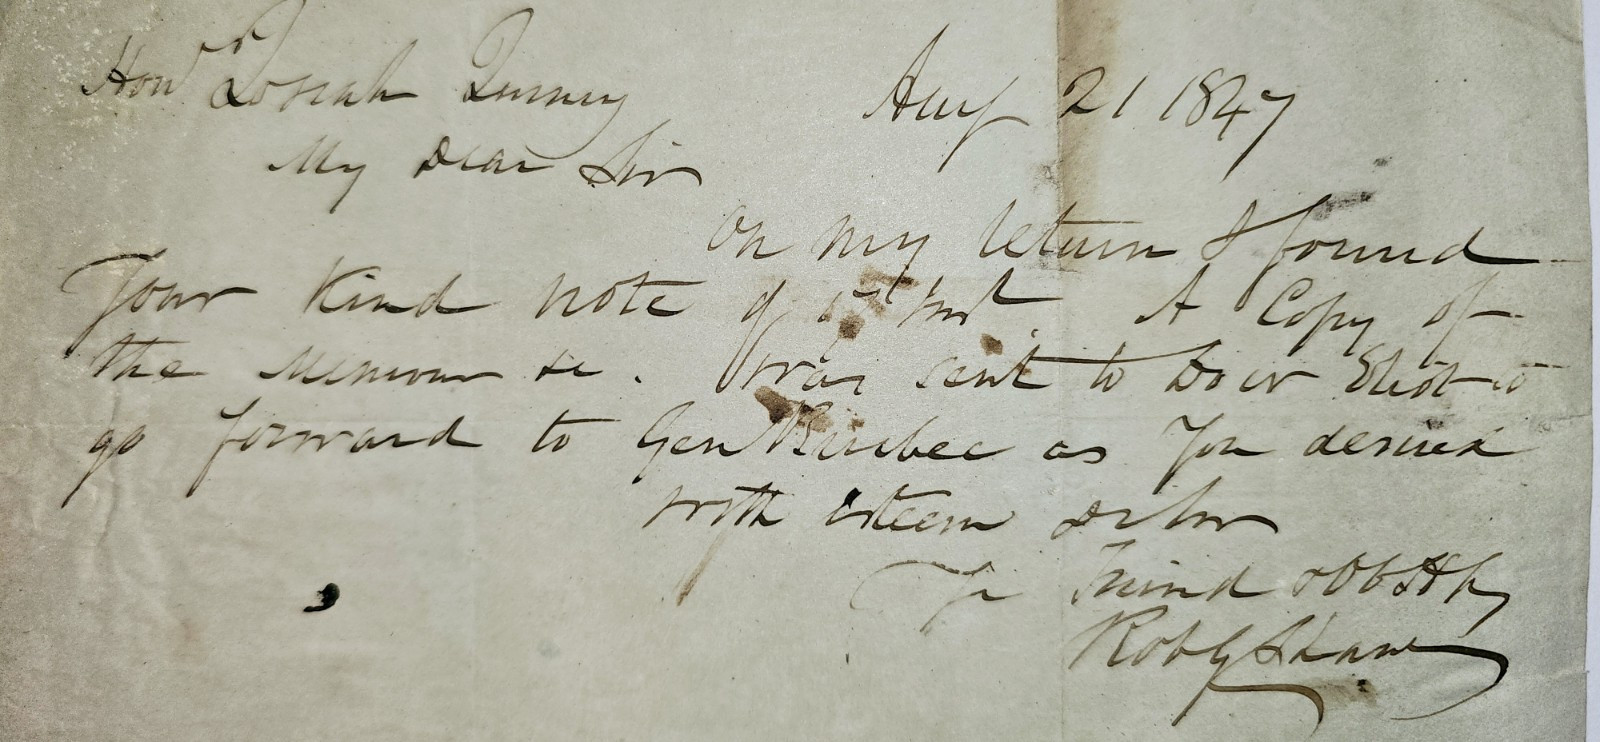 Honr Josiah Quincy Aug 21 1847
My Dear Sir
On my return I found
Your Kind note of 15th Inst. A Copy of
the Memoir &c. was sent to Doctr Eliot to
go forward to Gen as You desired
With esteem Dr Sir
Yr Friend & Ob St
Robt G Shaw